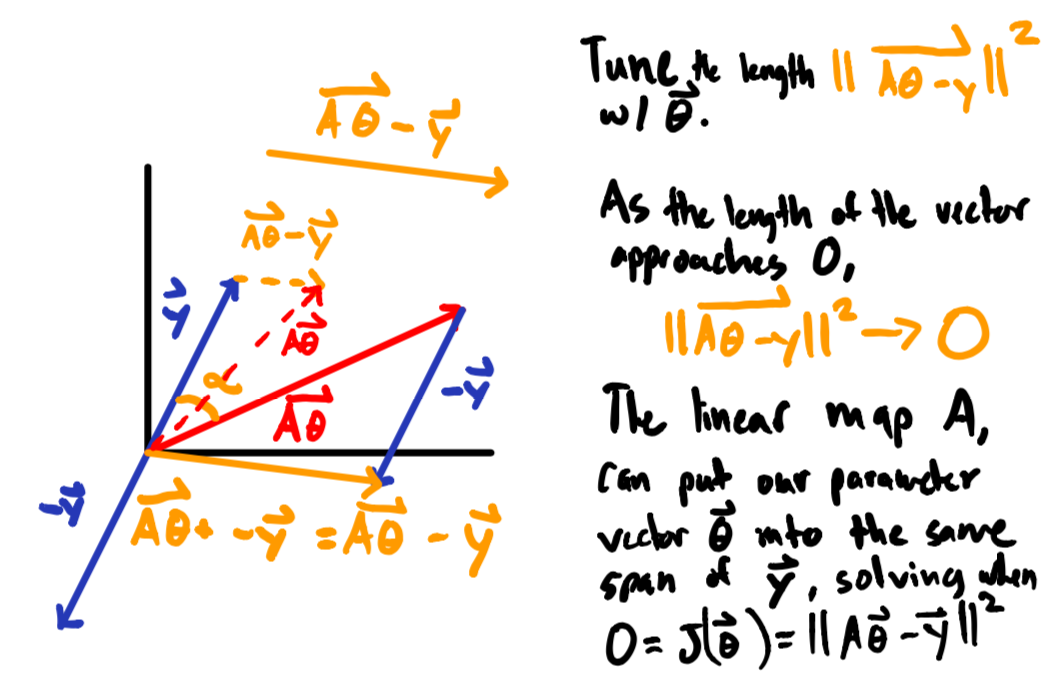 $\overrightarrow{A\theta} - \vec{y}$
$\overrightarrow{A\theta} - \vec{y}$
$\vec{y}$
$A\vec{\theta}$
α
$\overrightarrow{A\theta}$
$-\vec{y}$
$-\vec{y}$
$\overrightarrow{A\theta} + -\vec{y} = \overrightarrow{A\theta} - \vec{y}$
Tune the length $||\overrightarrow{A\theta - y}||^2$
w/ $\vec{\theta}$.
As the length of the vector
approaches 0,
$||\overrightarrow{A\theta - y}||^2 \to 0$
The linear map A,
can put our parameter
vector $\vec{\theta}$ into the same
span of $\vec{y}$, solving when
$0 = J(\vec{\theta}) = ||A\vec{\theta} - \vec{y}||^2$